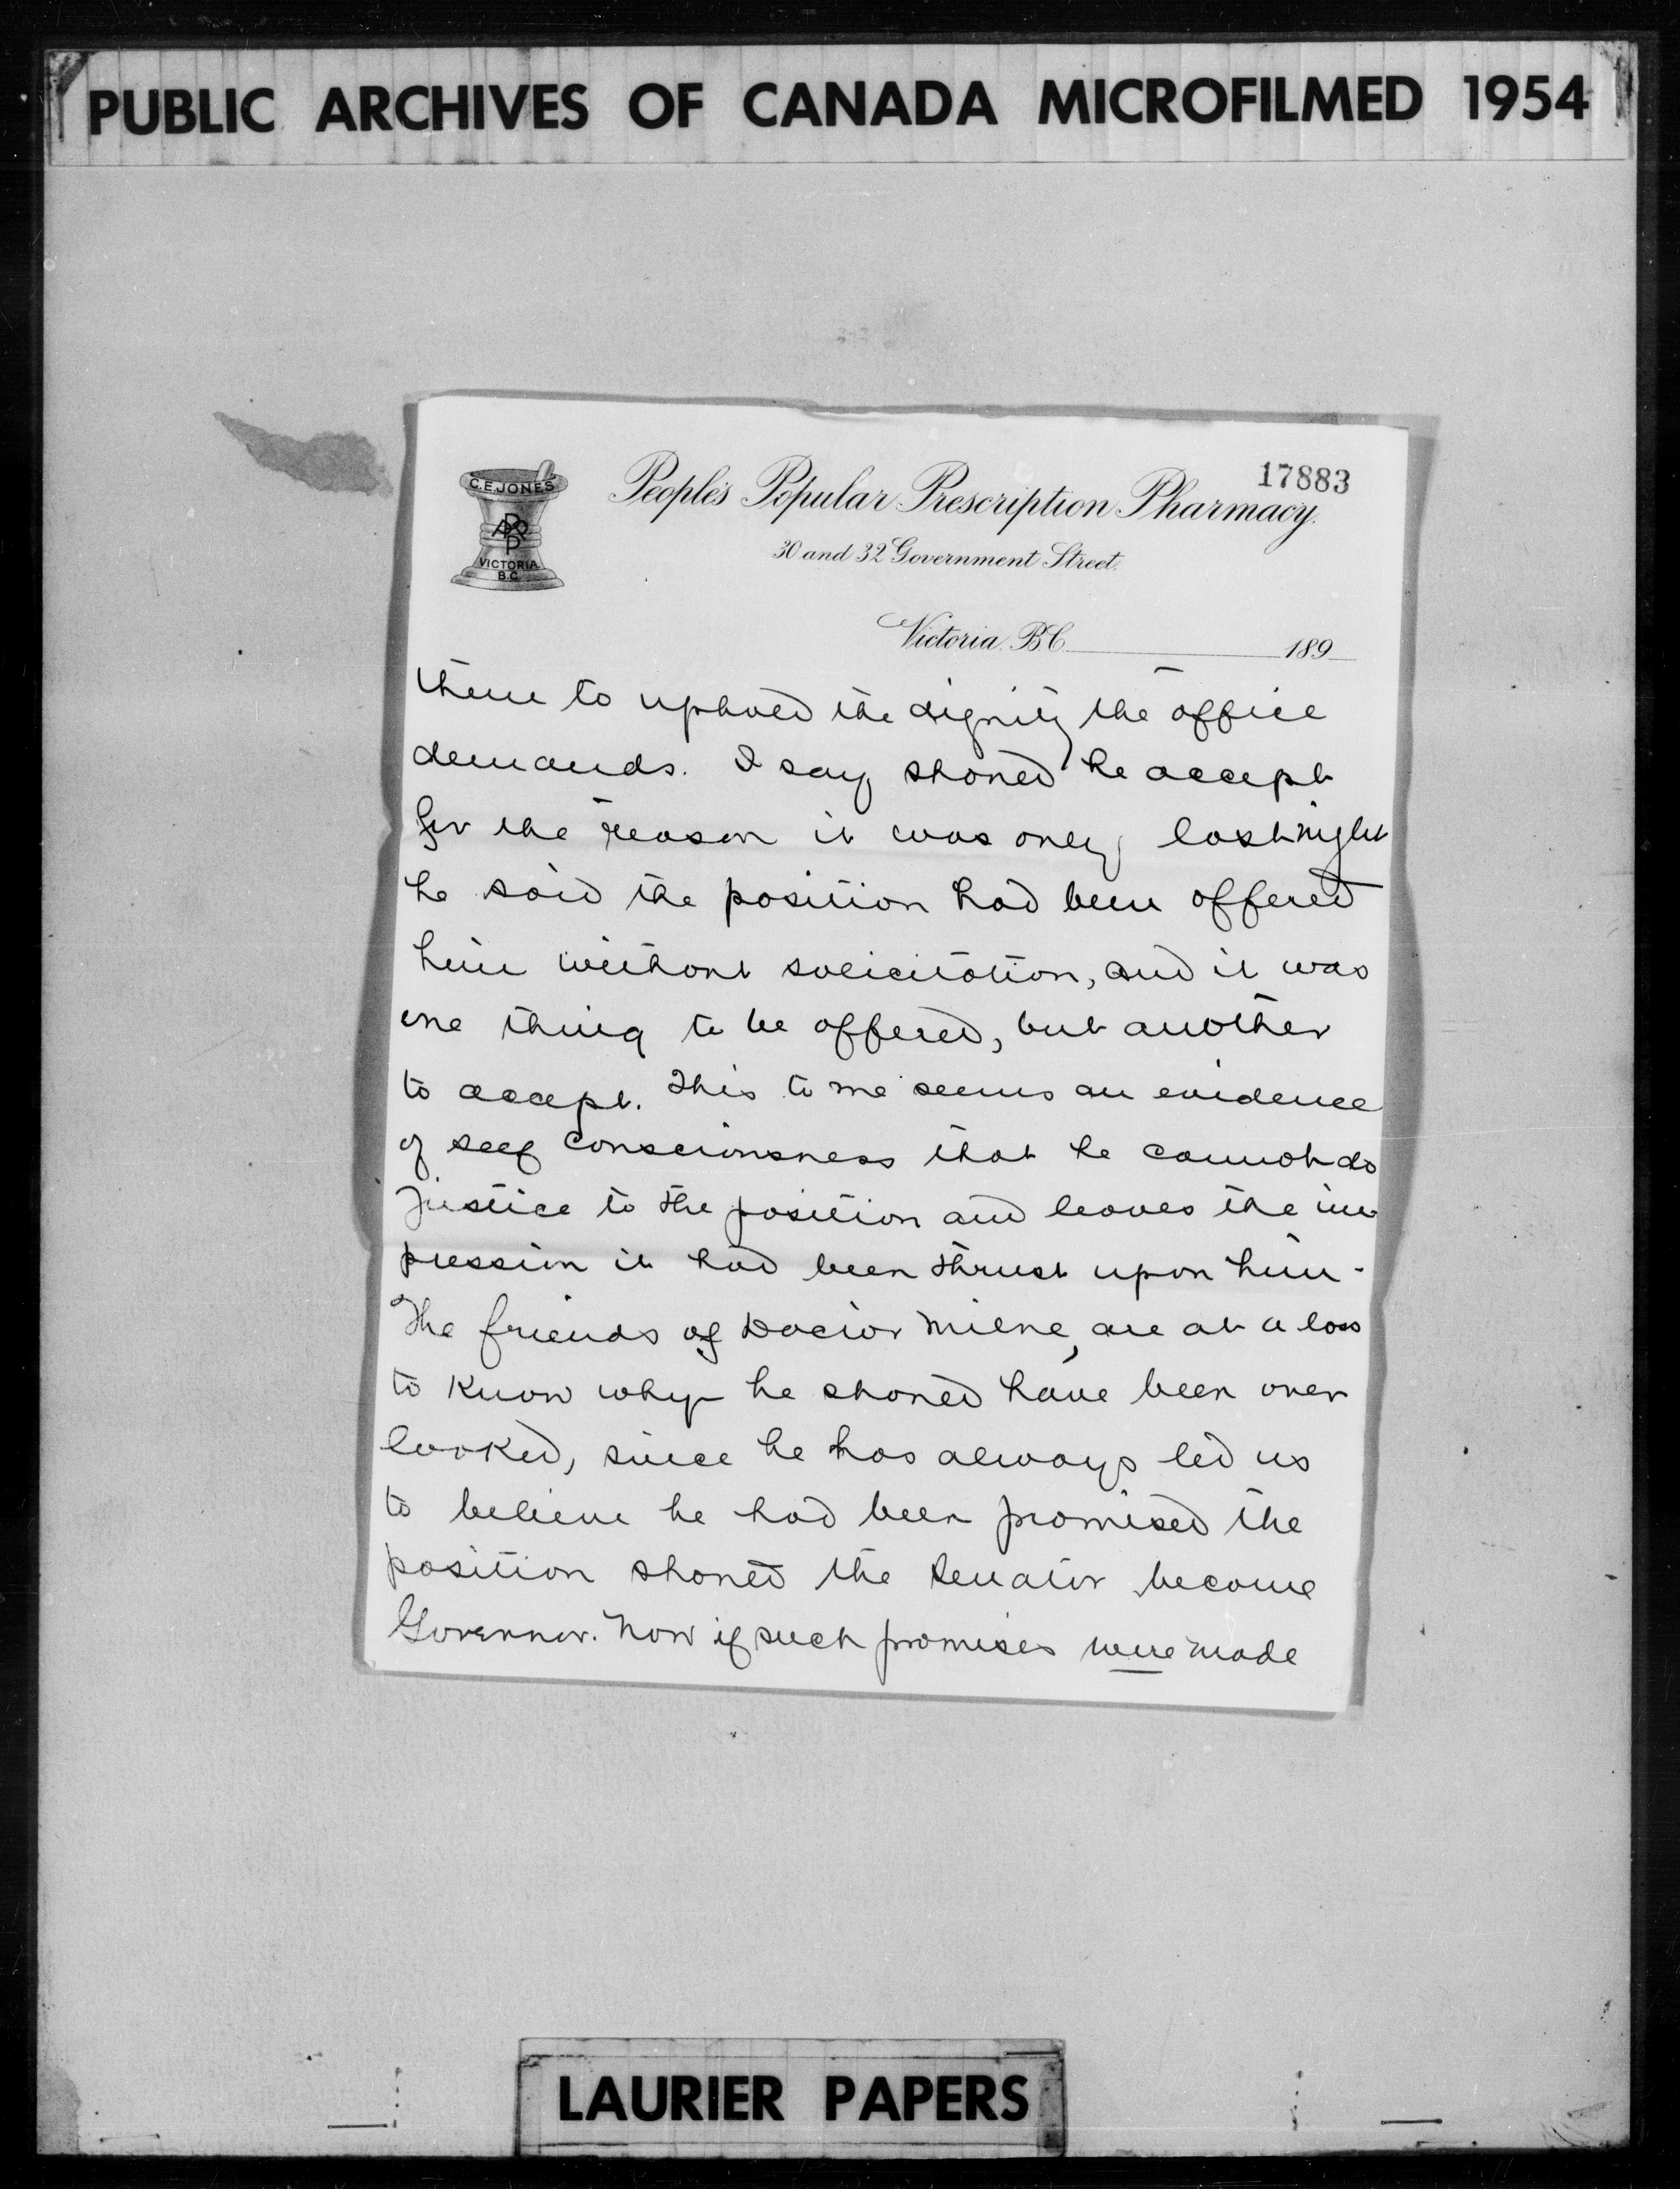 PUBLIC ARCHIVES OF CANADA MICROFILMED 1954
17883
C.E. JONES
PPPP
VICTORIA
B.C.
People's Popular Prescription Pharmacy.
30 and 32 Government Street.
Victoria, B.C. 189
them to uphold the dignity the office
demands. I say should he accept
for the reason it was only last night
he said the position had been offered
him without solicitation, and it was
one thing to be offered, but another
to accept. This to me seems an evidence
of self consciousness that he cannot do
justice to the position and leaves the im
pression it had been thrust upon him.
The friends of Doctor Milne, are at a loss
to know why he should have been over
looked, since he has always led us
to believe he had been promised the
position should the Senator become
Governor. Now if such promises were made
LAURIER PAPERS